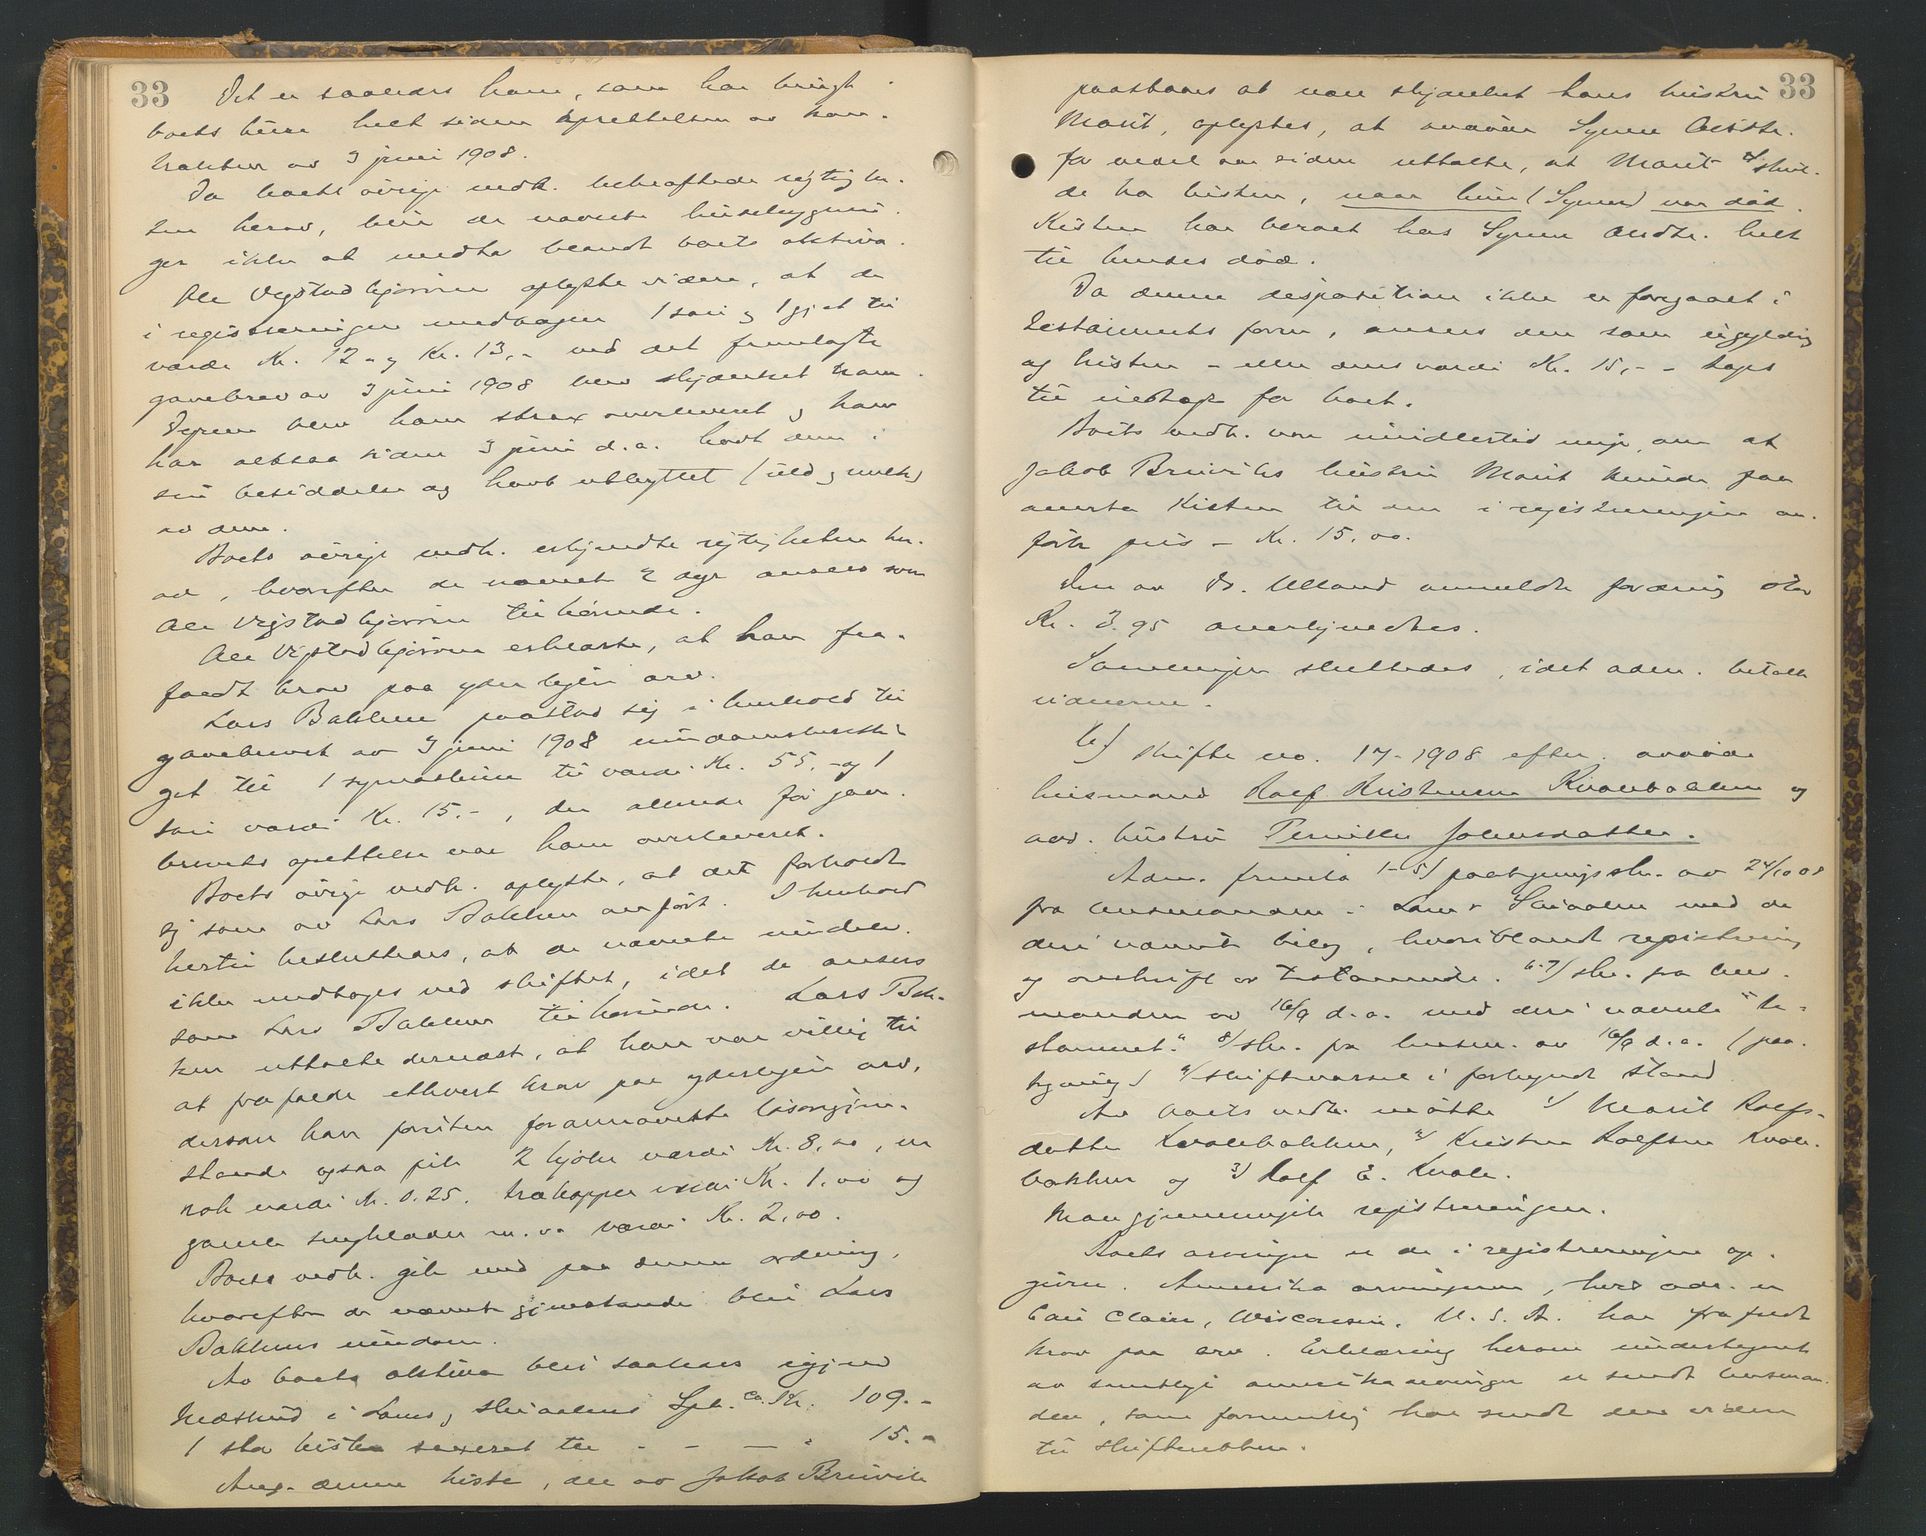 33
Det er saaledes ham, som har bragt
boets huse helt siden oprettelsen av kon-
trakten av 3 juni 1908.
Da boets övrige vedk. bekræftede rigtighe-
ten herav, blir de nævnte husebygnin-
ger ikke at medta blandt boets aktiva.
Ole Vigstadhjörnen oplyste videre, at de
i registreringen medtagne 1 sau og 1 gjet til
værdi Kr. 12,- og Kr. 13,- ved det fremlagte
gavebrev av 3 juni 1908 blev skjænket ham.
Dyrene blev ham strax overleveret og han
har altsaa siden 3 juni d.a. havt dem i
sin besiddelse og havt utbyttet (uld og melk)
av dem.
Boets övrige vedk. erkjendte rigtigheten her-
av, hvorefter de nævnte 2 dyr ansees som
Ole Vigstadhjörnen tilhörende.
Ole Vigstadhjörnen erklærte, at han fra-
faldt krav paa yderligere arv.
Lars Bakken paastod sig i henhold til
gavebrevet av 3 juni 1908 eiendomsberetti-
get til 1 symaskine til værdi Kr. 55,- og 1
sau værdi Kr. 15.-, der allerede för gave-
brevets oprettelse var ham overleveret.
Boets övrige vedk. oplyste, at det forholdt
sig som av Lars Bakken anfört. I henhold
hertil besluttedes, at de nævnte eiendele
ikke medtages ved skiftet, idet de ansees
som Lars Bakken tilhörende. Lars Bak-
ken uttalte dernæst, at han var villig til
at frafalde ethvert krav paa yderligere arv,
dersom han foruten forannævnte lösöregjen-
stande ogsaa fik 2 kjoler værdi Kr. 8,00, en
rok værdi Kr. 0.25, trækopper værdi Kr. 1,00 og
gamle sengklæder m.v. værdi Kr. 2,00.
Boets vedk. gik med paa denne ordning,
hvorefter de nævnte gjenstande blir Lars
Bakkens eiendom.
Av boets aktiva blir saaledes igjen
Indskud i Loms og Skiaakers Spb. ca. Kr. 109.-
1 stor kiste taxeret til - - - - 15.-
Ang. denne kiste, der av Jakob Bruvik
33
paastaaes at være skjænket hans hustru
Marit, oplystes, at avdöde Synne Olsdtr.
for endel aar siden uttalte, at Marit skul-
de ha kisten, naar hun (Synne) var död.
Kisten har beroet hos Synne Olsdtr. helt
til hendes död.
Da denne desposition ikke er foregaaet i
testaments form, ansees den som ugyldig
og kisten - eller dens værdi Kr. 15,- - tages
til indtægt for boet.
Boets vedk. var imidlertid enige om at
Jakob Bruviks hustru Marit kunde faa
overta kisten til den i registreringen an-
förte pris - Kr. 15.00.
Den av Dr. Ulland anmeldte fordring stor
Kr. 3.95 anerkjendtes.
Samlingen sluttedes, idet adm. betalte
vidnerne.
b) Skifte no. 17-1908 efter avdöde
husmand Rolf Kristensen Kvalebakken og
avd. hustru Pernille Johansdatter.
Adm. fremla 1-5) paategningsskr. av 24/10 08
fra lensmanden i Lom & Skiaaker med de
deri nævnte bilag, hvoriblandt registrering
og avskrift av testamente. 6-7) skr. fra lens-
manden av 16/9 d.a. med deri nævnte "te-
stament". 8) skr. fra lensm. av 16/9 d.a. (paa-
tegning) 9) skiftevarsel i forkyndt stand.
Av boets vedk. mötte 1) Marit Rolfs-
datter Kvalebakken, 2) Kristen Rolfsen Kvale-
bakken og 3) Rolf E. Kvale.
Man gjennemgik registreringen.
Boets arvinger er de i registreringen op-
givne. Amerika arvingerne, hvis adr. er
Eau Claire, Wisconsin, U. S. A. har frafaldt
krav paa arv. Erklæring herom undertegnet
av samtlige amerika arvinger er sendt lensman-
den, som formentlig har sendt den videre
til skifteretten.